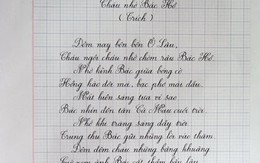 Cháu nhớ Bác Hồ
( Trích )
Đêm nay bên bến Ô Lâu,
Cháu ngồi cháu nhớ chòm râu Bác Hồ.
Nhớ hình Bác giữa bóng cờ
Hồng hào đôi má, bạc phơ mái đầu.
Mắt hiền sáng tựa vì sao
Bác nhìn đến tận Cà Mau cuối trời.
Nhớ khi trăng sáng đầy trời
Trung thu Bác gửi những lời vào thăm.
Đêm đêm cháu những bâng khuâng